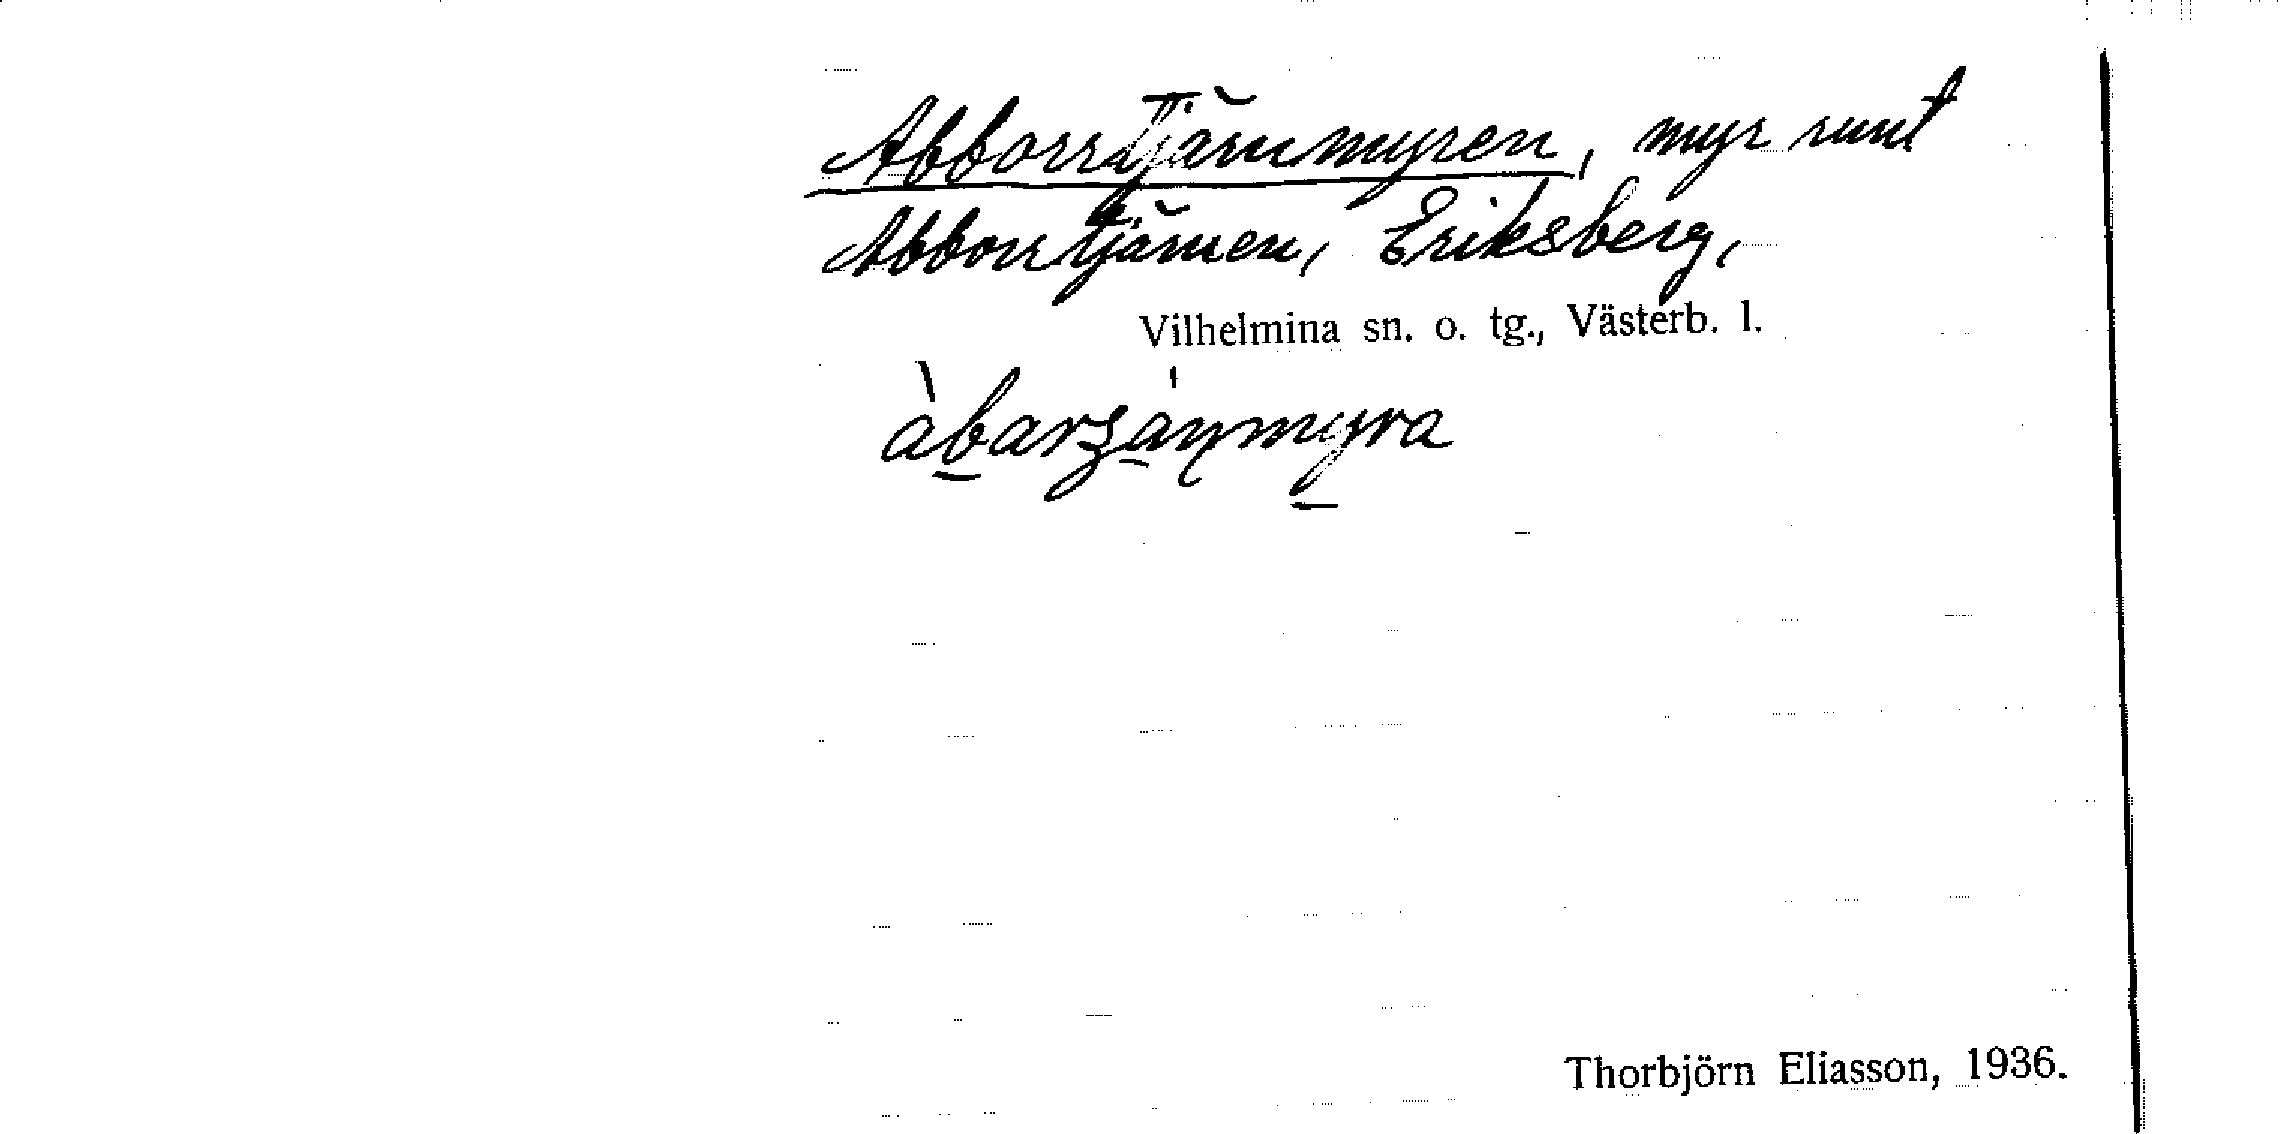 Abborrtjärnmyren, myr runt
Abborrtjärnen, Eriksberg,
Vilhelmina sn. o. tg., Västerb. l.
Thorbjörn Eliasson, 1936.